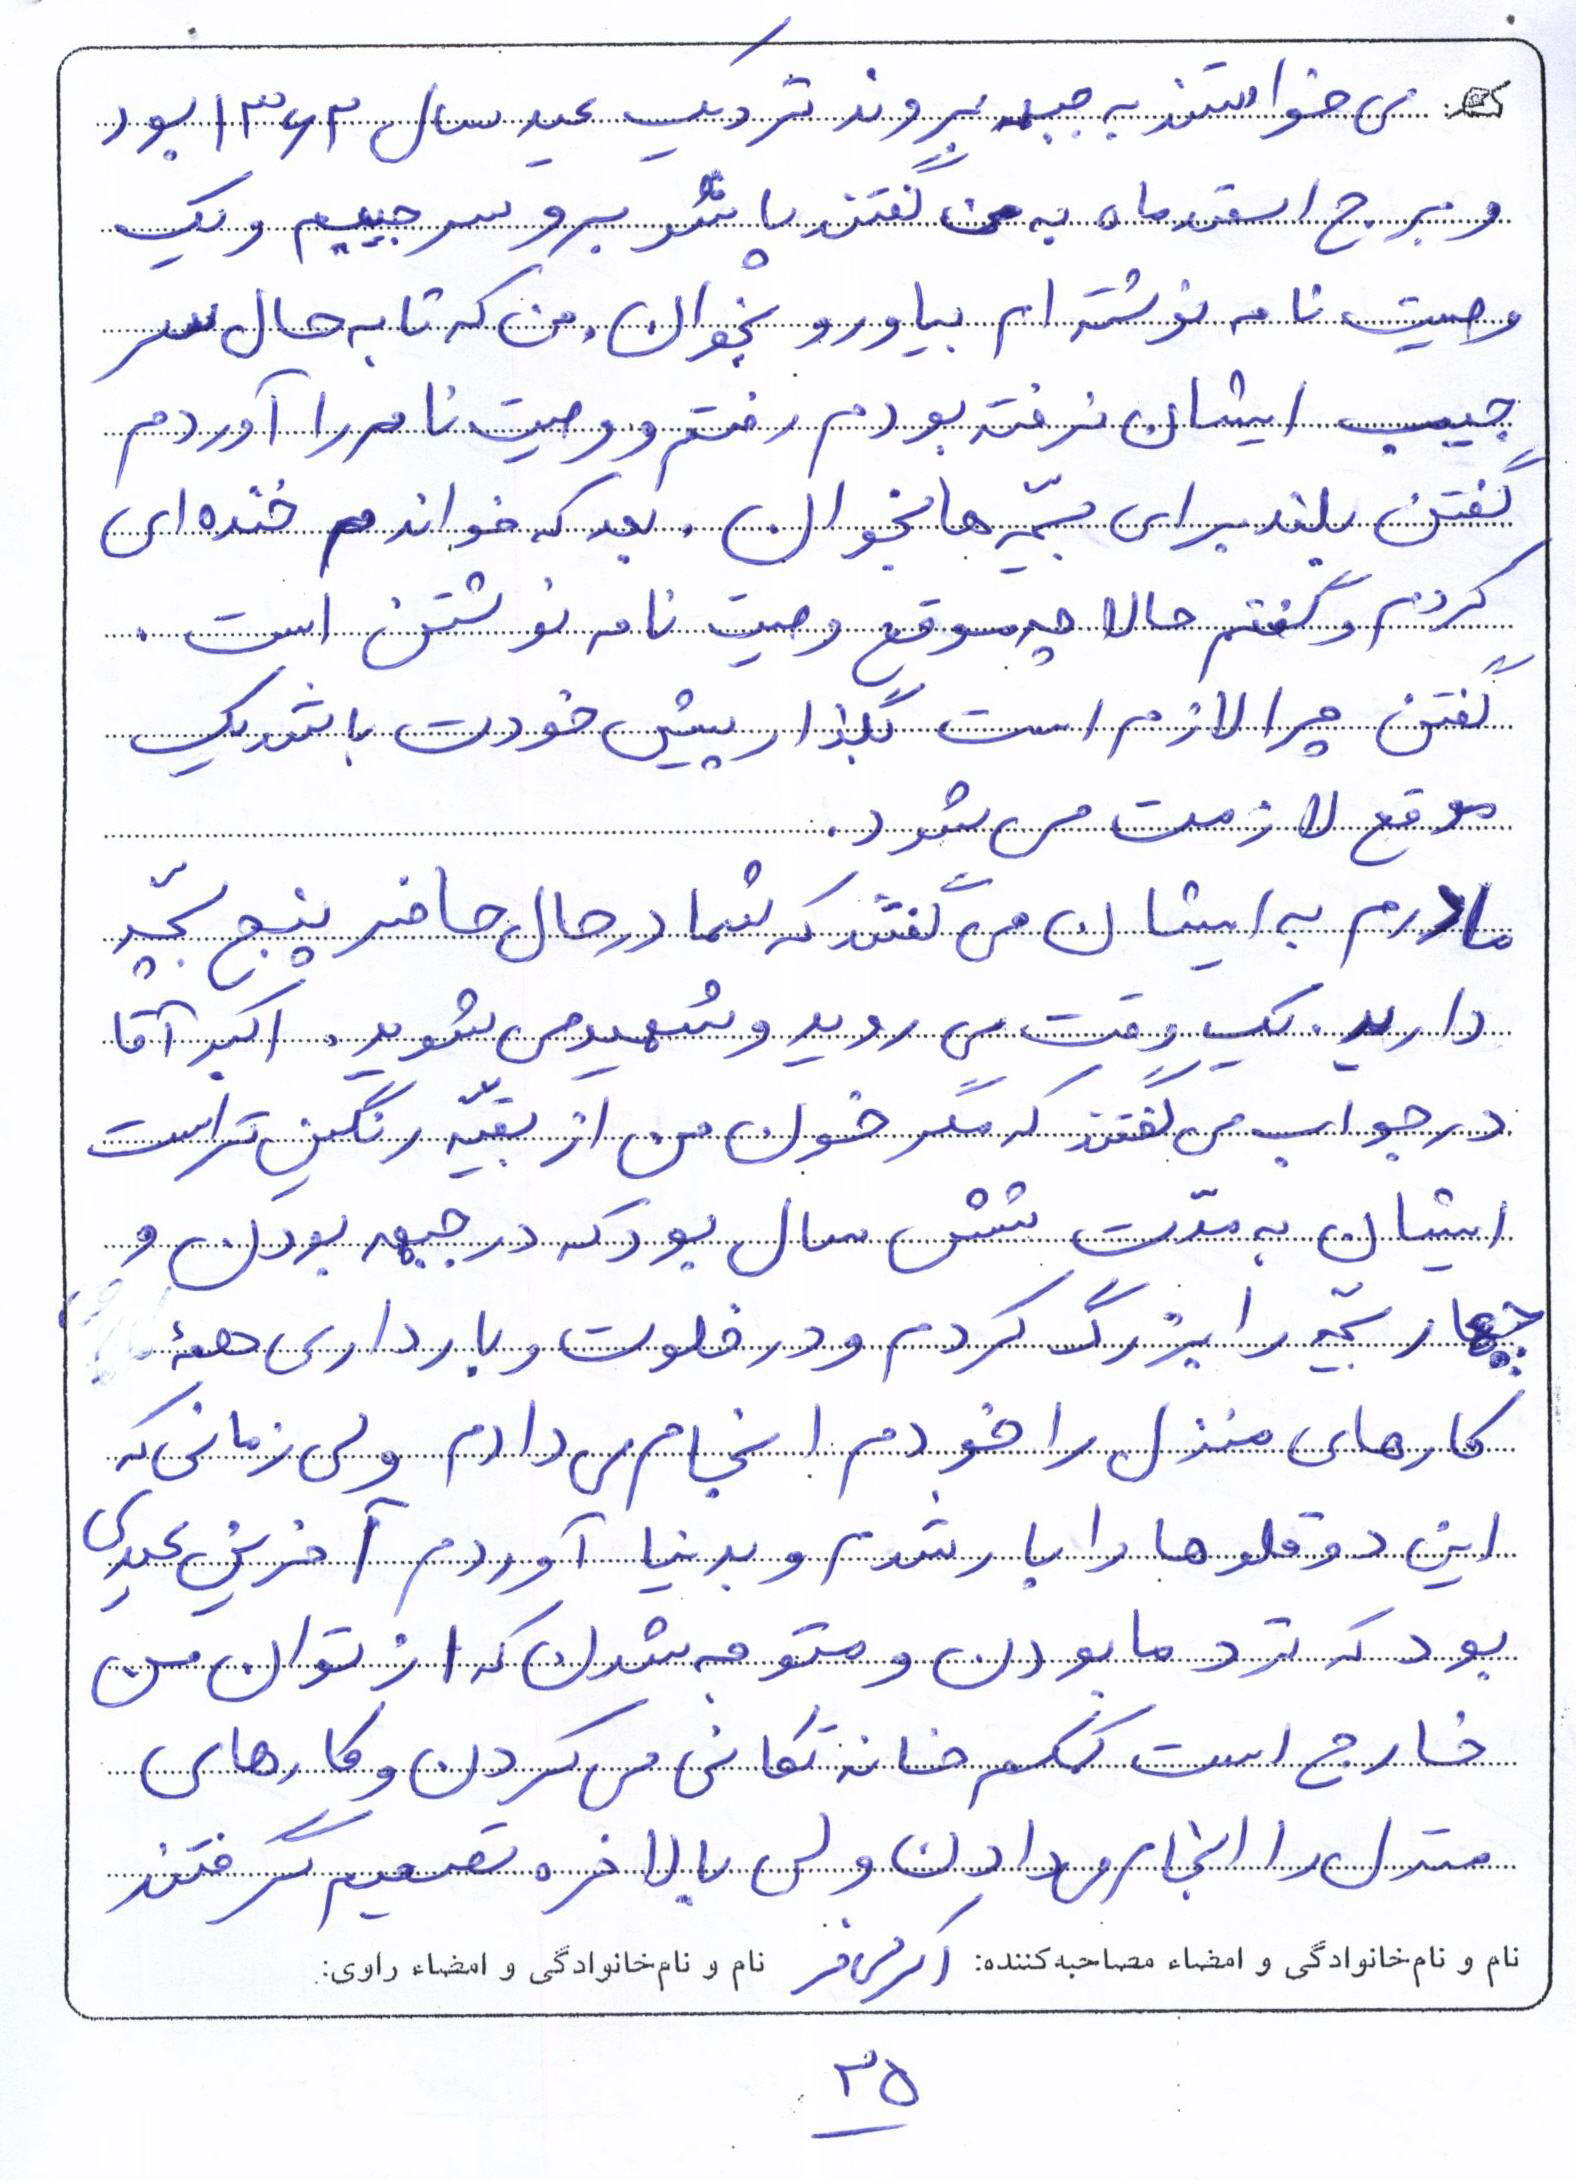 می خواستند به جبهه بروند نزدیک عید سال ۱۳۶۲ بود
و برج اسفندماه به من گفتند پاشو برو سر جیبم و یک
وصیت نامه نوشته ام بیاور و بخوان. من که تا به حال سر
جیب ایشان نرفته بودم رفتم و وصیت نامه را آوردم
گفتن بلند برای بچّه ها بخوان. بعد که خواندم خنده ای
کردم و گفتم حالا چه موقع وصیت نامه نوشتن است.
گفتن چرا لازم است بگذار پیش خودت باشد یک
موقع لازمت می شود.
مادرم به ایشان می گفتند که شما در حال حاضر پنج بچّه
دارید. یک وقت می روید و شهید می شوید. اکبر آقا
در جواب می گفتند که مگر خون من از بقیّه رنگین تر است
ایشان به مدّت شش سال بود که در جبهه بودن و
چهار بچّه را بزرگ کردم و در خلوت و بارداری همهٔ
کارهای منزل را خودم انجام می دادم ولی زمانی که
این دوقلوها را باردار شدم و بدنیا آوردم آخرین عیدی
بود که نزد ما بودن و متوجه شدن که از توان من
خارج است کمکم خانه تکانی می کردن و کارهای
منزل را انجام می دادن ولی بالاخره تصمیم گرفتند
نام و نام خانوادگی و امضاء مصاحبه کننده: نام و نام خانوادگی و امضاء راوی:
۳۵